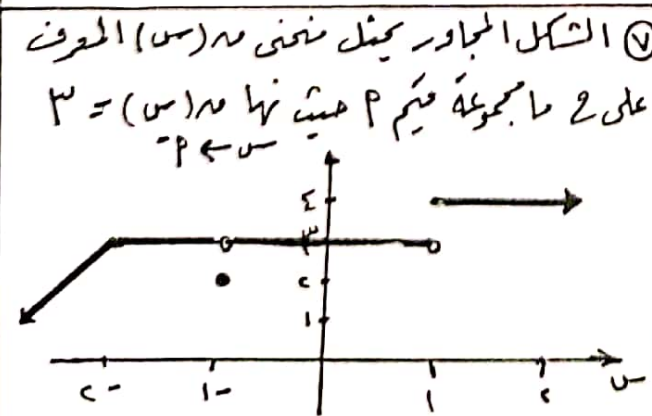 ٧ الشكل المجاور يمثل منحنى ق(س) المعرف
على ح ما مجموعة قيم P حيث نها ق(س) = ٣
س ← P⁻
٤
٣
٢
١
-٢ -١ ١ ٢ س